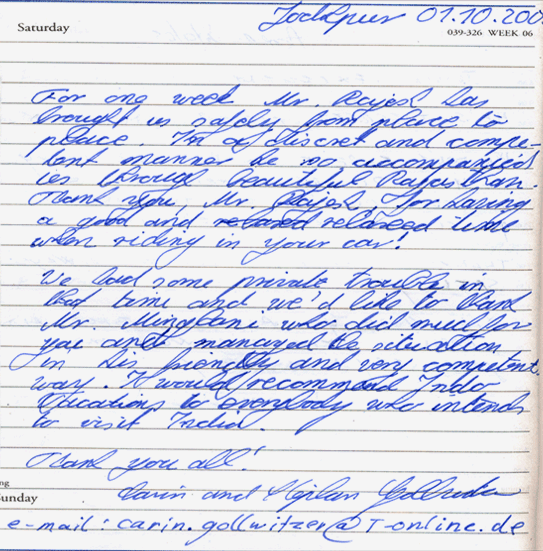 Jodhpur 01.10.200
Saturday
039-326 WEEK 06
For one week Mr. Rajesh has
brought us safely from place to
place. In a discret and compe-
tent manner he so accompanied
us through beautiful Rajasthan.
Thank you, Mr. Rajesh, for having
a good and relaxed time
when riding in your car!
We had some private trouble in
that time and we'd like to thank
Mr. Minglani who did much for
you and managed the situation
in his friendly and very competent
way. I would recommend Indo
Vacations to everybody who intends
to visit India.
Thank you all!
Carin and Gollwitzer
unday
e-mail: carin.gollwitzer@T-online.de